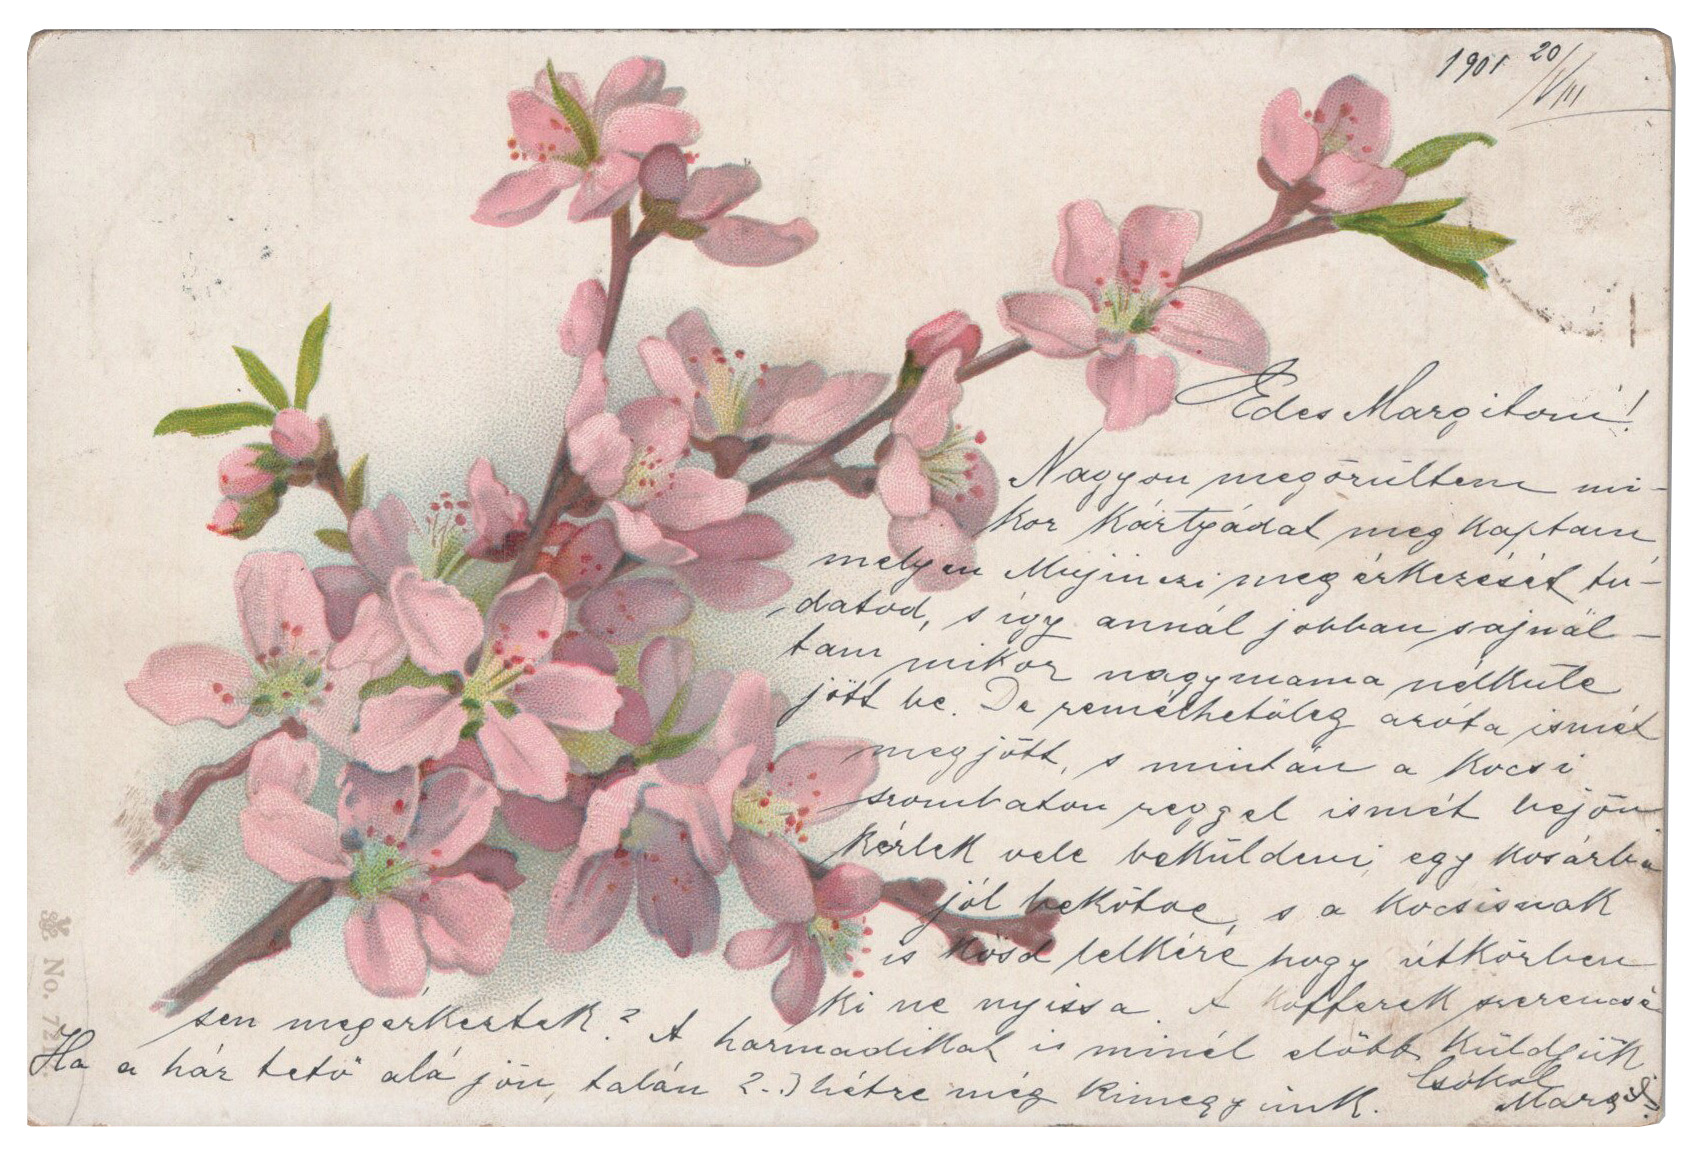 1901 20/VIII
Édes Margitom!
Nagyon megörültem mi-
kor kártyádat meg kaptam
melyen megérkezését tu-
datod, s így annál jobban sajnál-
tam mikor nagymama nélküle
jött be. De remélhetőleg azóta ismét
megjött, s mintán a kocsi
szombaton reggel ismét bejön
kérlek vele beküldeni, egy kosárba
jól bekötve, s a kocsisnak
is kösd lelkére hogy útközben
ki ne nyissa. A kofferek szerencsé-
sen megérkeztek? A harmadikat is minél előbb küldjük
Ha a ház tető alá jön, talán 2-3 hétre még kimegyünk.
Csókol
No. 721.